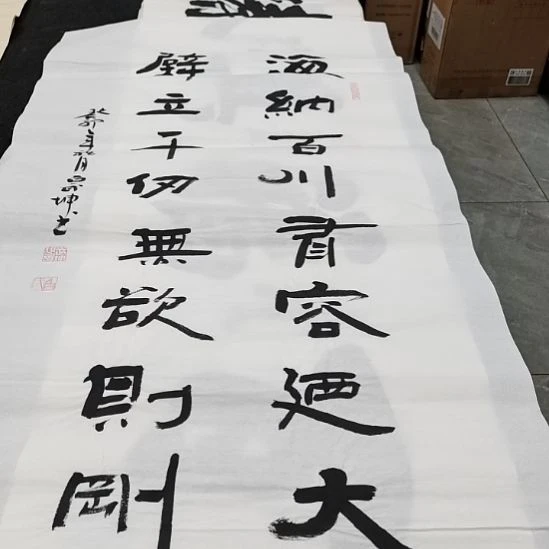 海納百川有容廼大
壁立千仞無欲則剛
癸卯年 月 坤书